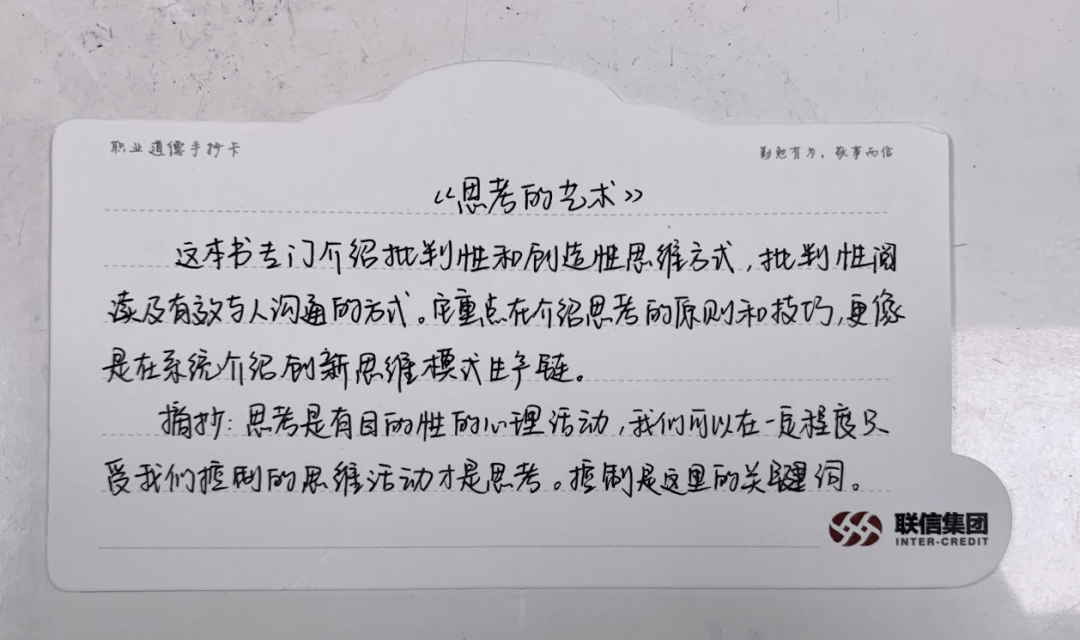 职业道德手抄卡
勤勉有为，敬事而信
《思考的艺术》
这本书专门介绍批判性和创造性思维方式，批判性阅
读及有效与人沟通的方式。它重点在介绍思考的原则和技巧，更像
是在系统介绍创新思维模式生产链。
摘抄：思考是有目的性的心理活动，我们可以在一定程度只
受我们控制的思维活动才是思考。控制是这里的关键词。
联信集团
INTER-CREDIT